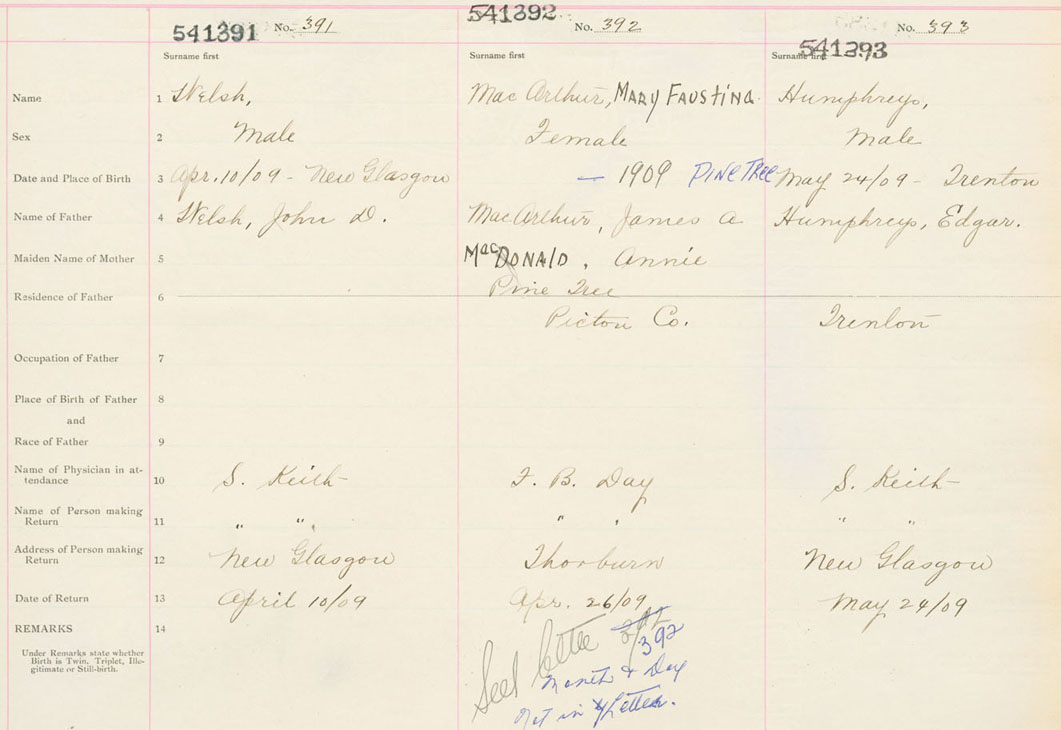 541391 No. 391 541392 No. 392 541393 No. 393
Surname first Surname first Surname first
Name 1 Welsh, MacArthur, MARY FAUSTINA Humphreys,
Sex 2 Male Female Male
Date and Place of Birth 3 Apr. 10/09 - New Glasgow — 1909 PINE TREE May 24/09 - Trenton
Name of Father 4 Welsh, John D. MacArthur, James A Humphreys, Edgar.
Maiden Name of Mother 5 MacDONALD, Annie
Pine Tree
Residence of Father 6
Pictou Co. Trenton
Occupation of Father 7
Place of Birth of Father 8
and
Race of Father 9
Name of Physician in at-
tendance 10 S. Keith F. B. Day S. Keith
Name of Person making
Return 11 " " " " " "
Address of Person making
Return 12 New Glasgow Thorburn New Glasgow
Date of Return 13 April 10/09 Apr. 26/09 May 24/09
REMARKS 14
Under Remarks state whether
Birth is Twin, Triplet, Ille-
gitimate or Still-birth.
See letter 392
392
Month & Day
Not in Letter.